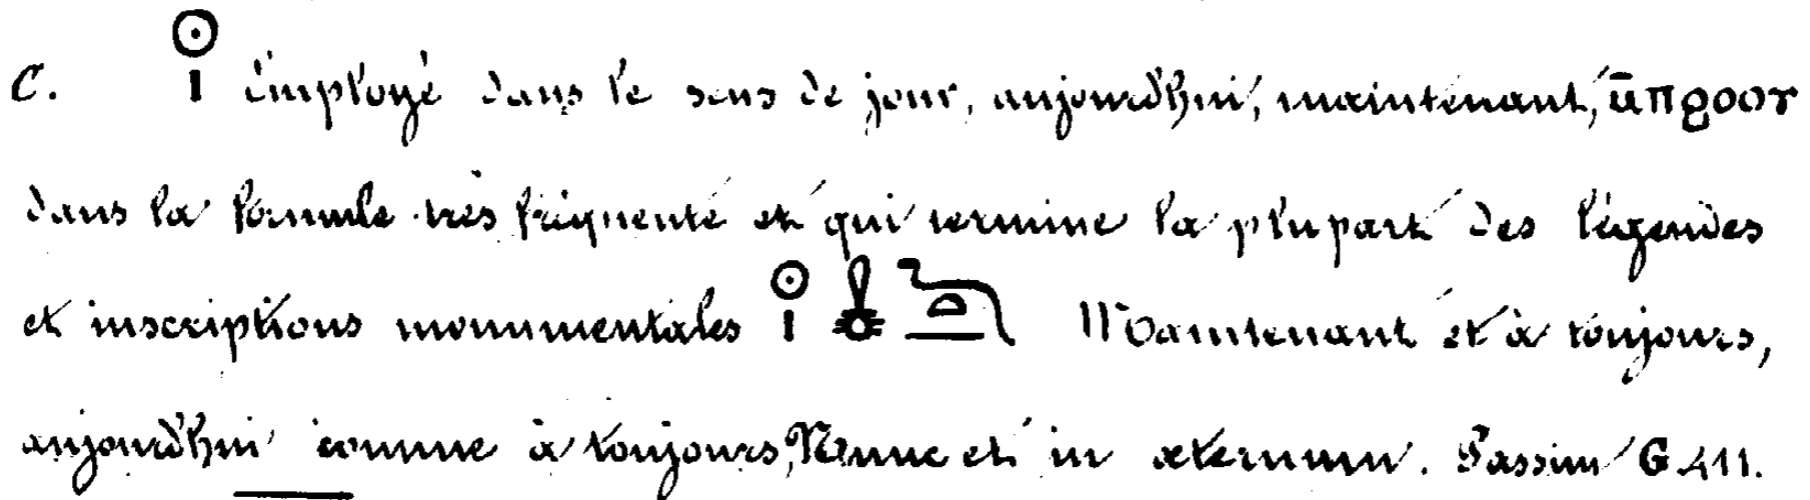 C. 𓇳𓏤 Employé dans le sens de jour, aujourd'hui, maintenant, ⲙ̄ⲡϩⲟⲟⲩ
dans la formule très fréquente et qui termine la plupart des légendes
et inscriptions monumentales 𓇳𓏤 Maintenant et à toujours,
aujourd'hui comme à toujours, Nunc et in æternum. Passim G 411.